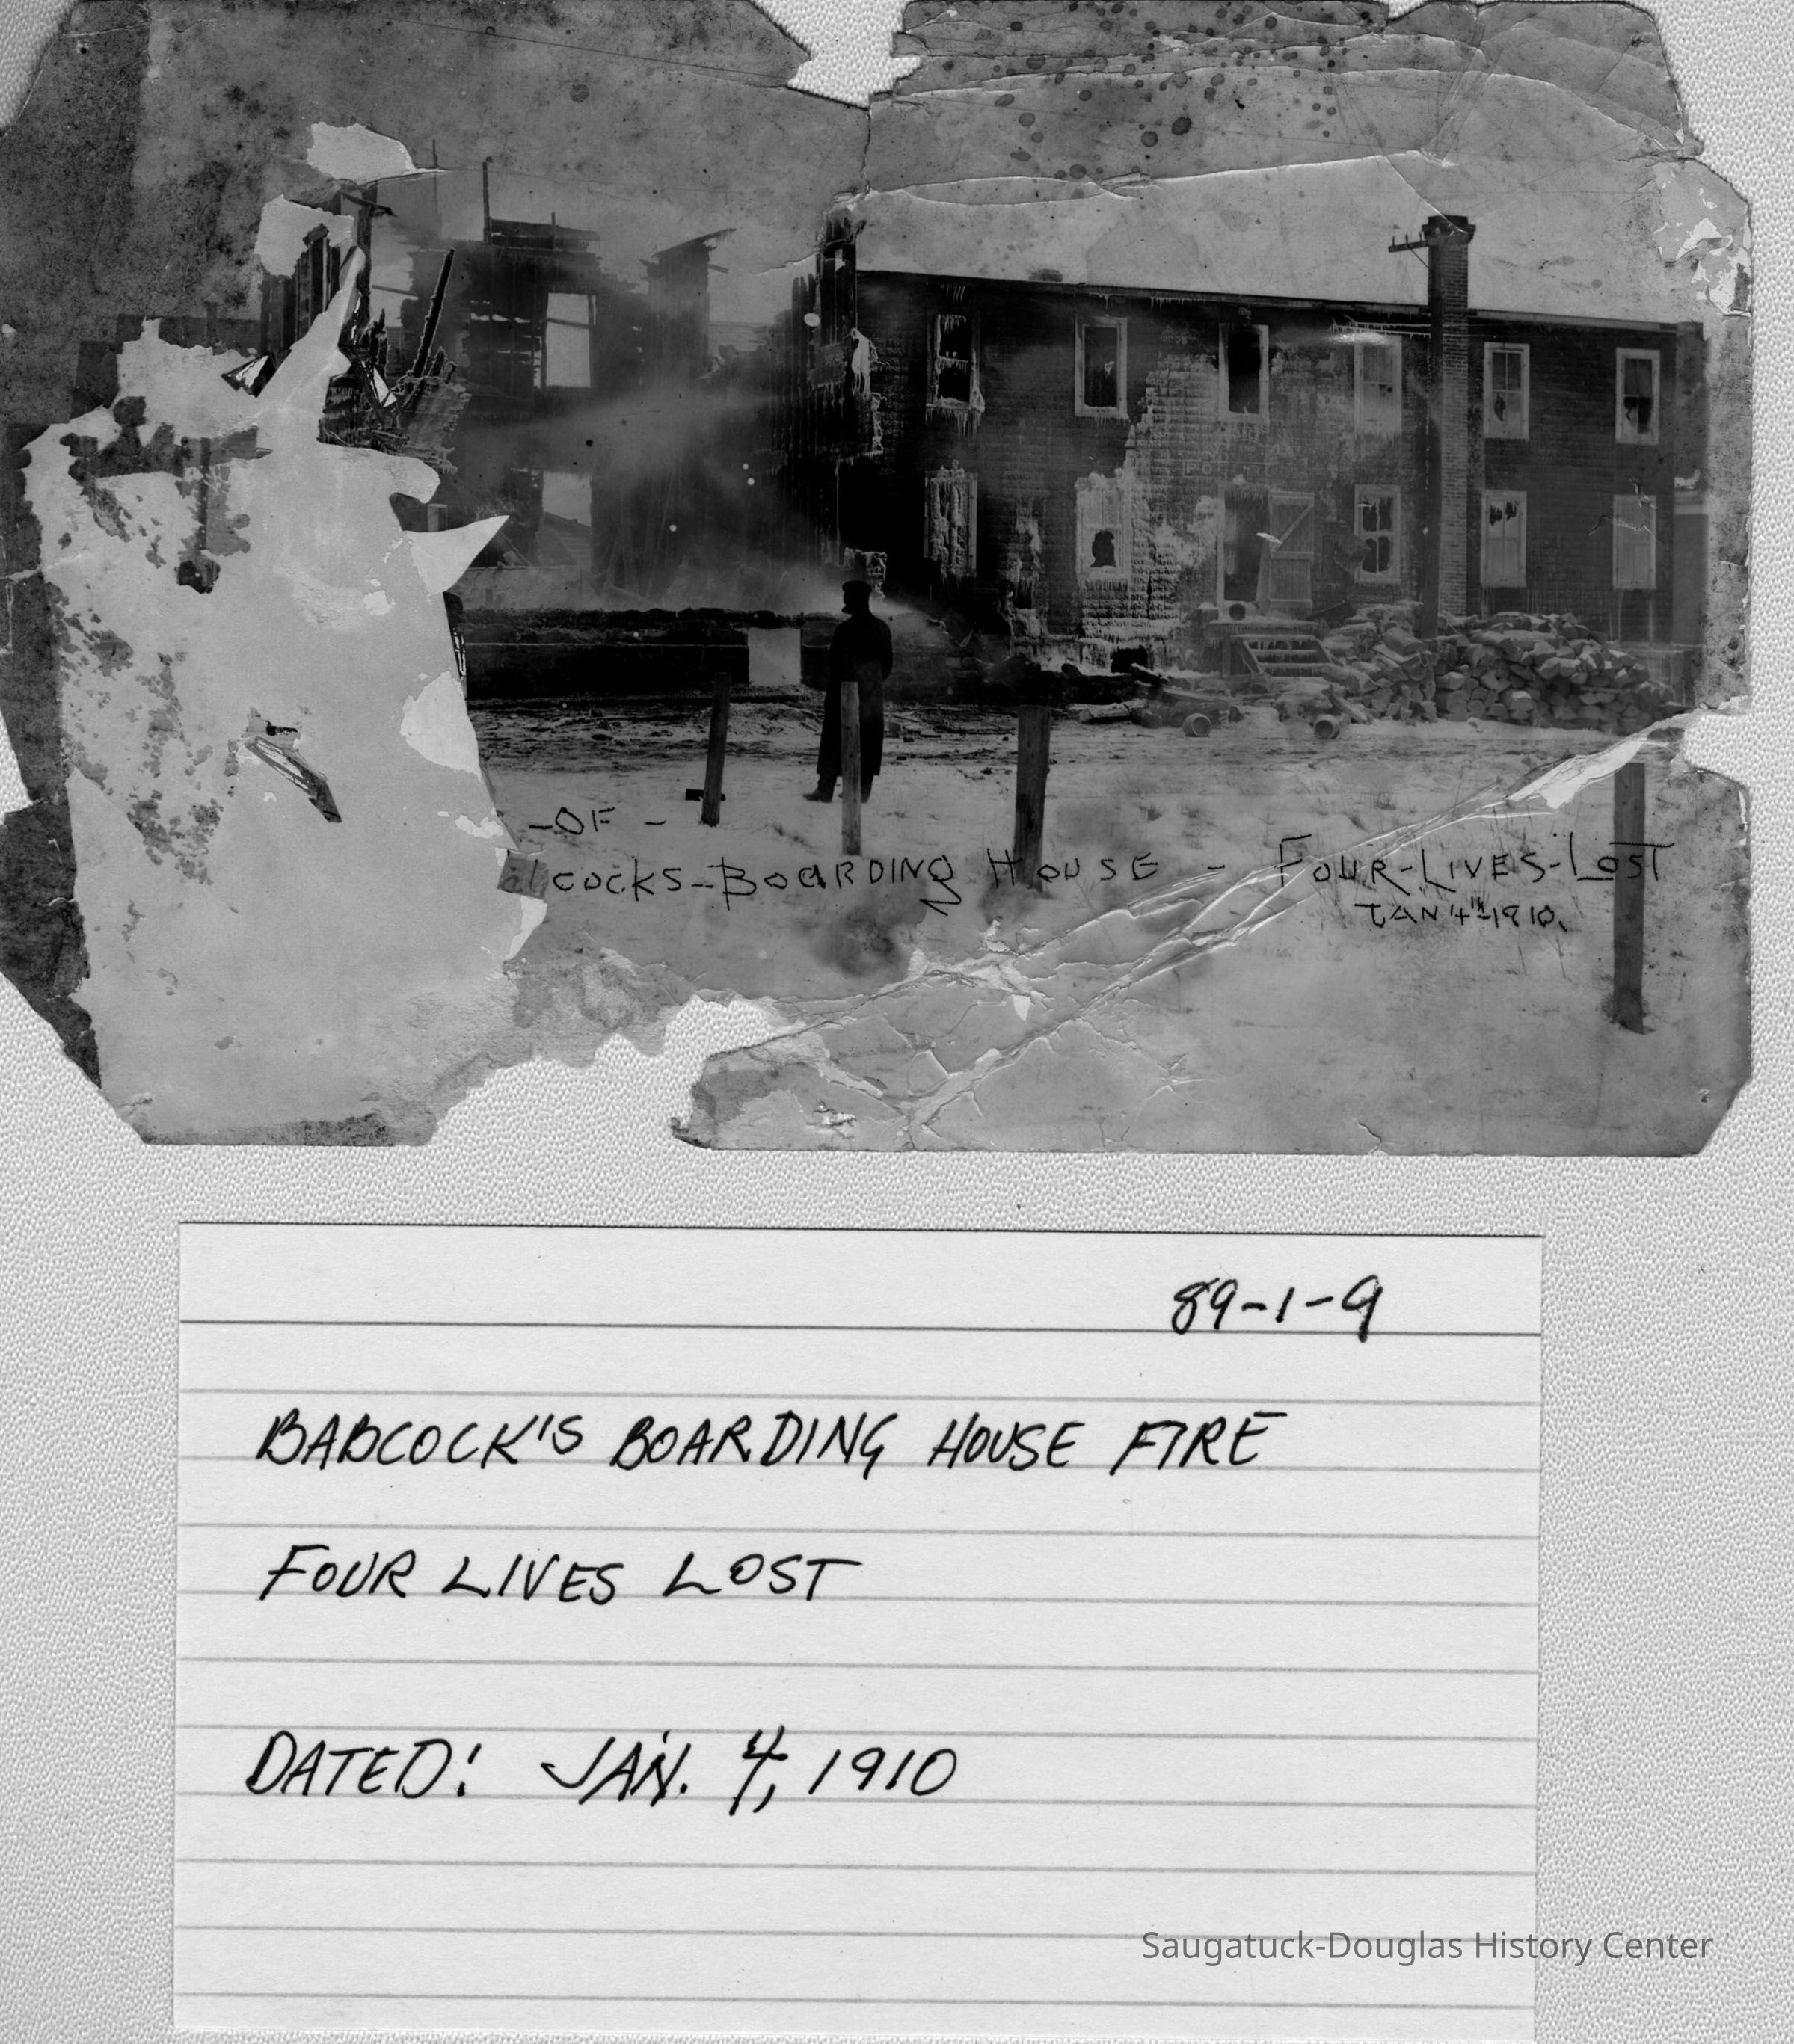 -OF-
lcocks-Boarding House - Four-Lives-Lost
Jan 4th-1910.
89-1-9
BABCOCK'S BOARDING HOUSE FIRE
FOUR LIVES LOST
DATED: JAN. 4, 1910
Saugatuck-Douglas History Center